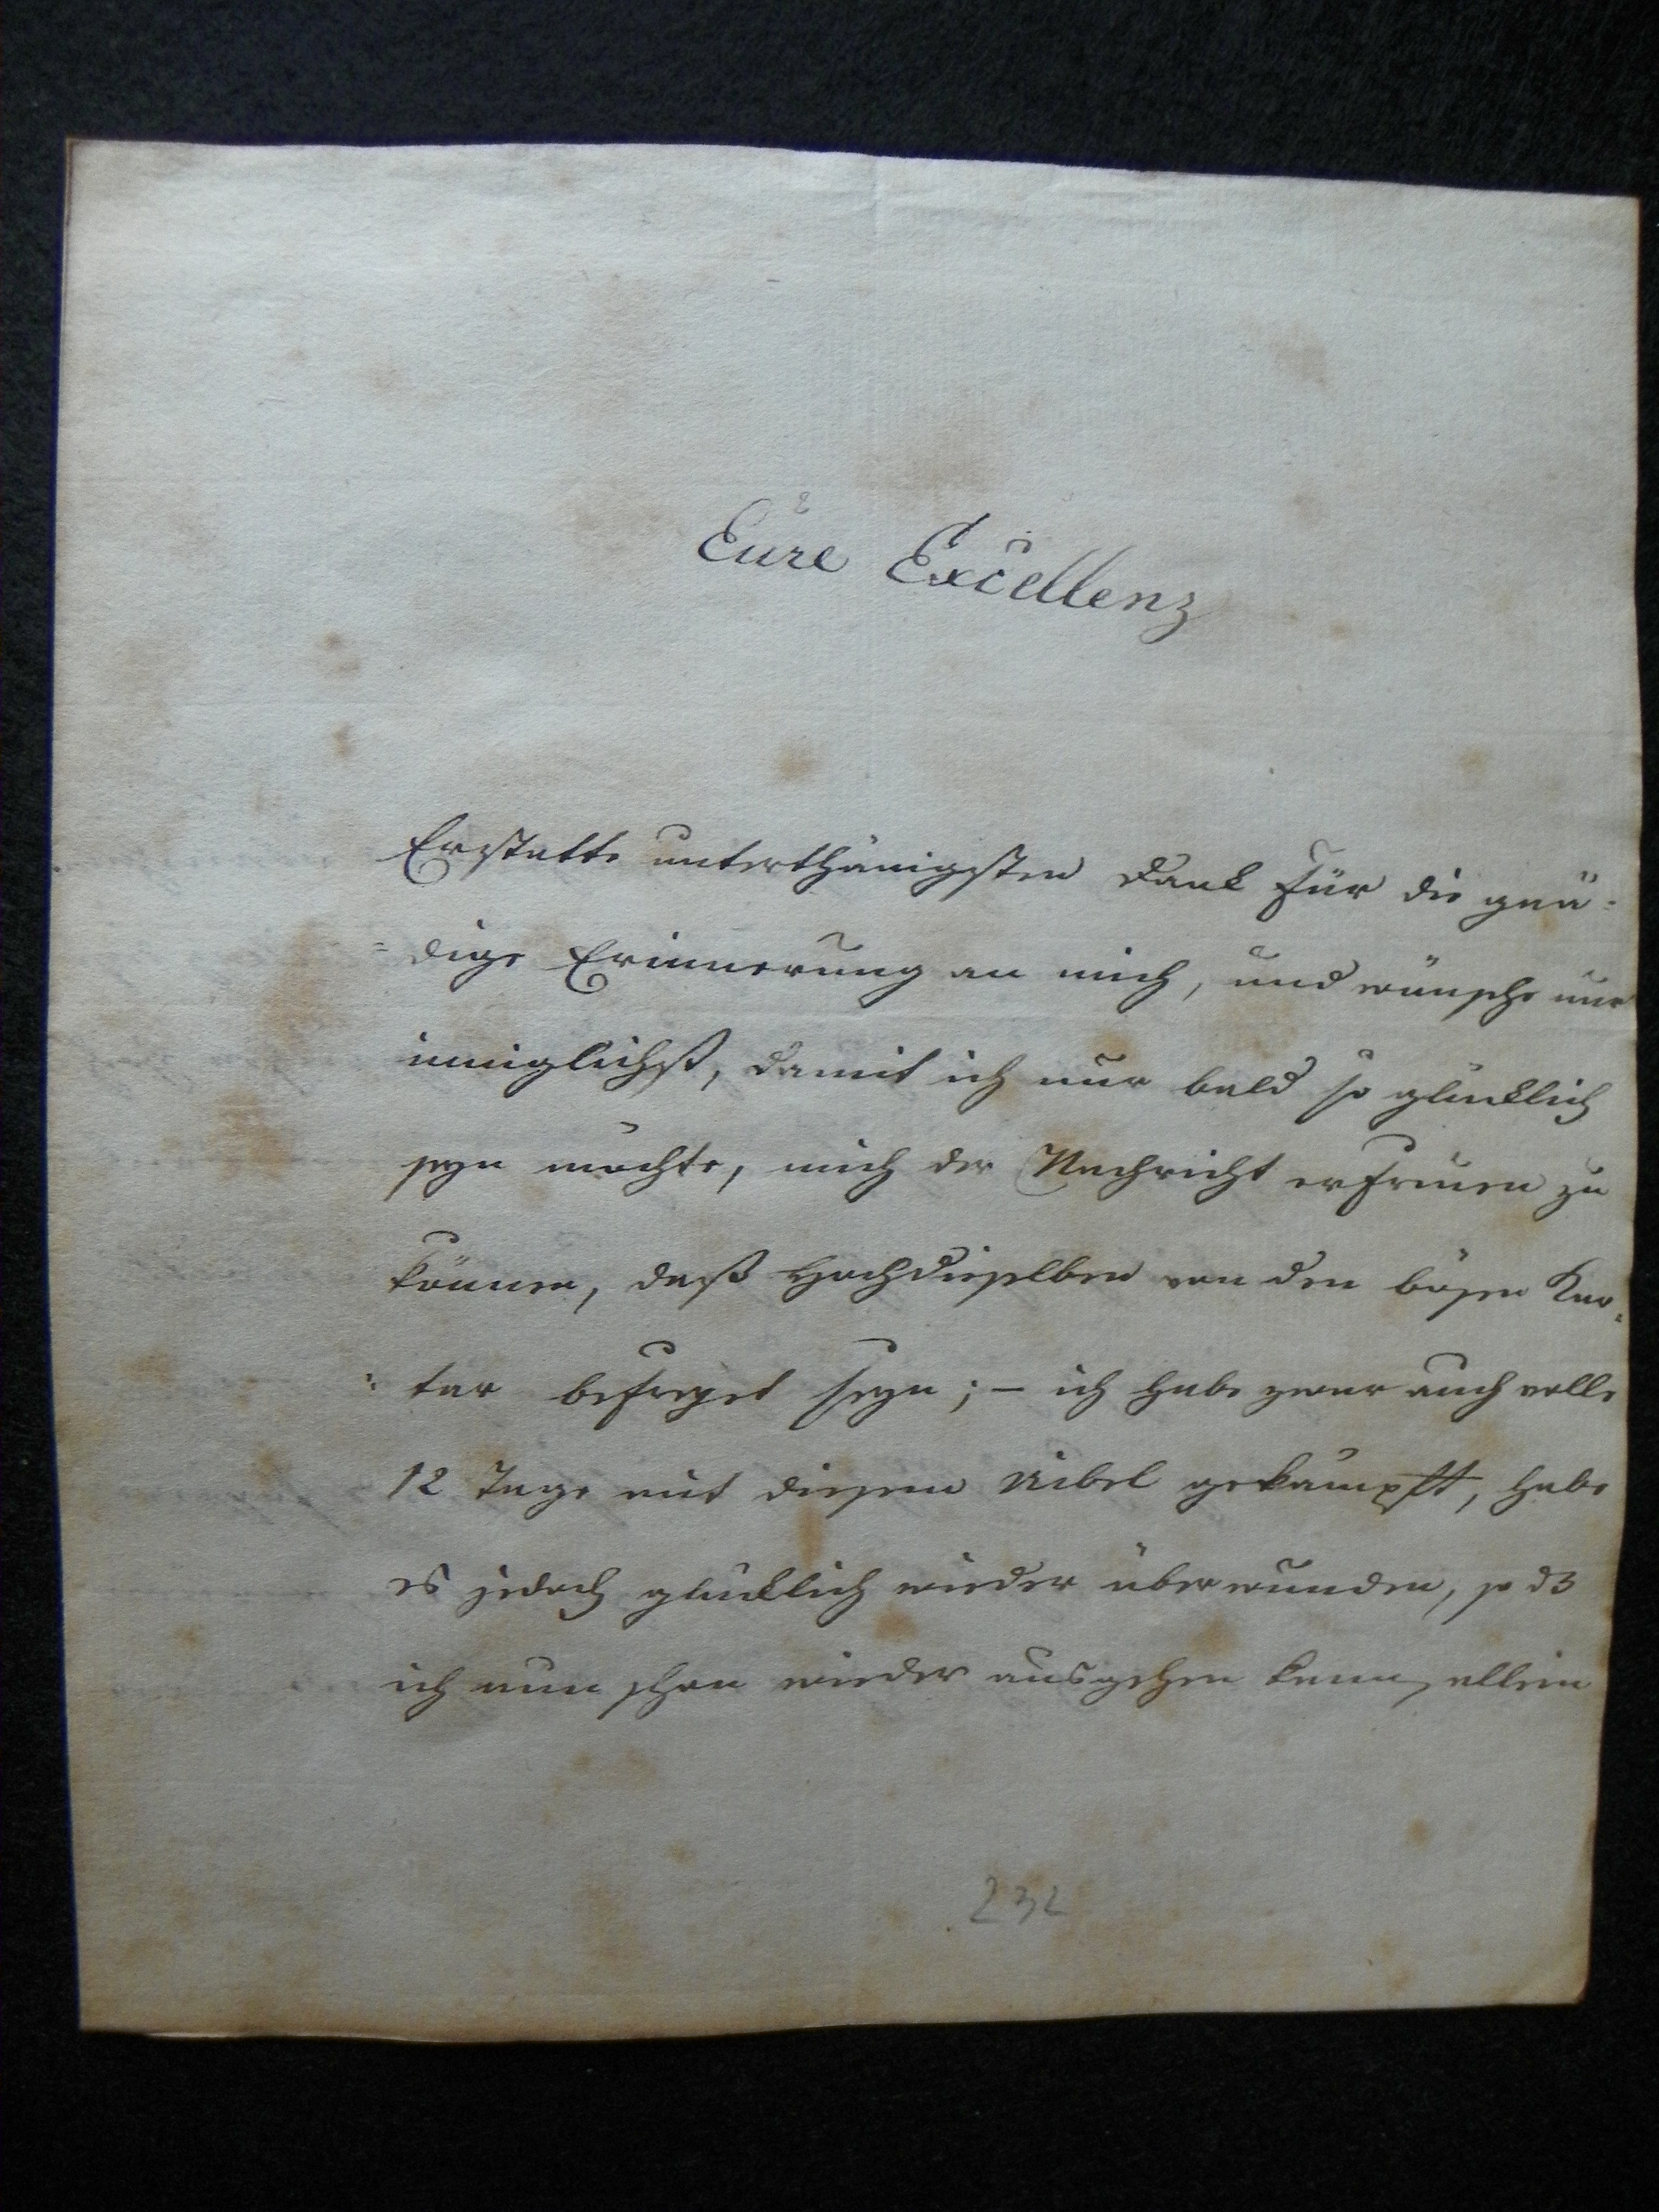 Eure Excellenz
Erstatte unterthänigsten Dank für die gnä-
=dige Erinnerung an mich, und wünsche nur
inniglichst, damit ich nur bald so glücklich
seyn möchte, mich der Nachricht erfreuen zu
können, daß Hochdieselben von den bösen Kar=
=tar befreyet seyn; – ich habe zwar auch volle
12 Tage mit diesem Uibel gekämpft, habe
es jedoch glücklich wieder überwunden, so dß
ich nun schon wieder ausgehen kann, allein
232